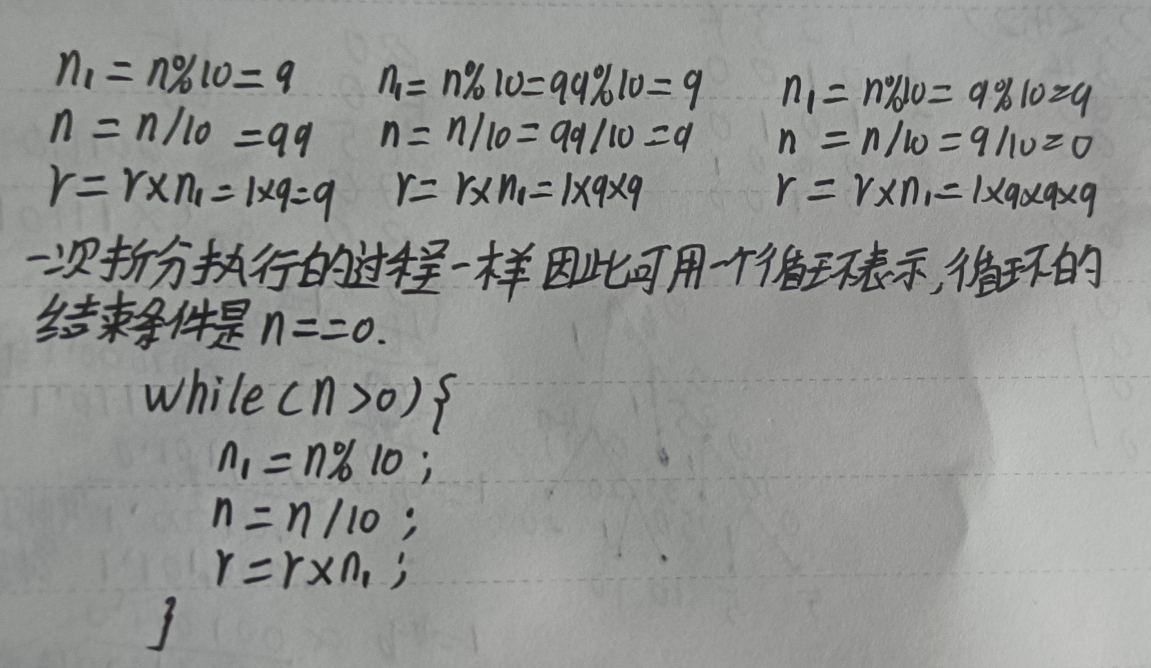 n₁ = n%10 = 9 n₁ = n%10 = 99%10 = 9 n₁ = n%10 = 9%10 = 9
n = n/10 = 99 n = n/10 = 99/10 = 9 n = n/10 = 9/10 = 0
r = r×n₁ = 1×9 = 9 r = r×n₁ = 1×9×9 r = r×n₁ = 1×9×9×9
一次拆分执行的过程一样因此可用一个循环表示,循环的
结束条件是 n==0.
while(n>0){
n₁ = n%10;
n = n/10;
r = r×n₁;
}